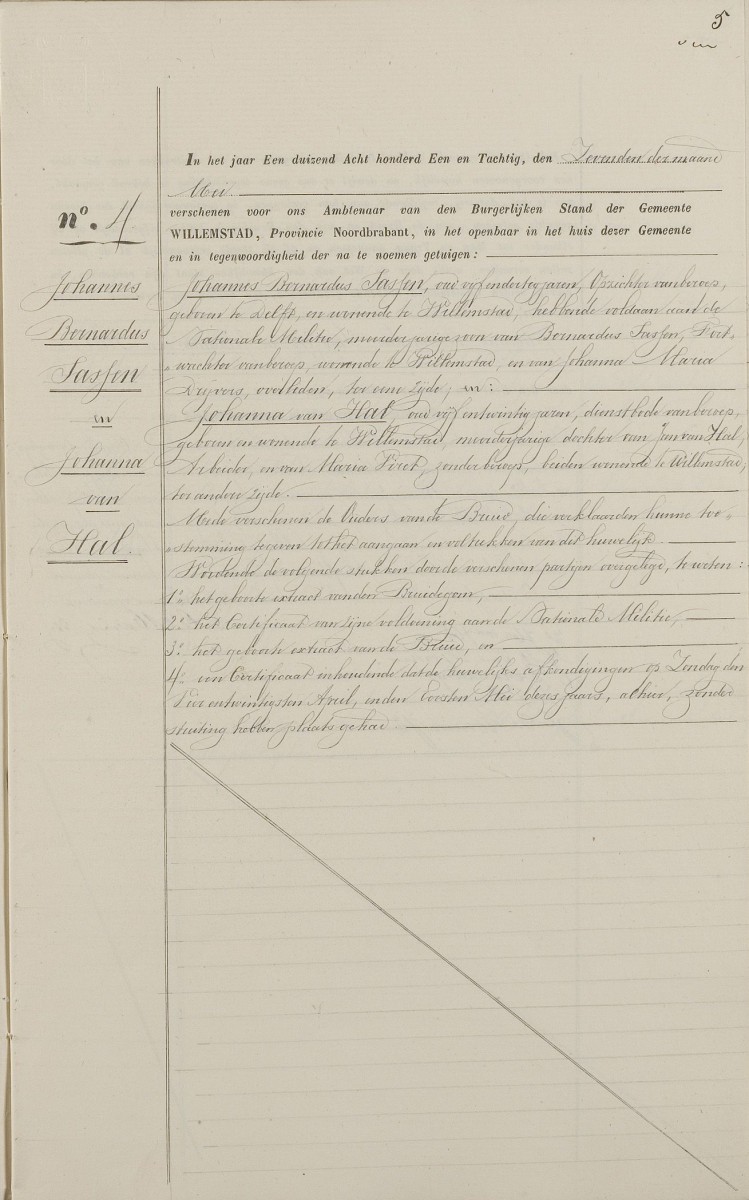 5
In het jaar Een duizend Acht honderd Een en Tachtig, den Zevenden der maand
Mei.
verschenen voor ons Ambtenaar van den Burgerlijken Stand der Gemeente
WILLEMSTAD, Provincie Noordbrabant, in het openbaar in het huis dezer Gemeente
en in tegenwoordigheid der na te noemen getuigen:
nº. 4
Johannes
Bernardus
Sassen
en
Johanna
van
Hal.
Johannes Bernardus Sassen, oud vijfendertig jaren, Opzichter van beroep,
geboren te Delft, en wonende te Willemstad, hebbende voldaan aan de
Nationale Militie, meerderjarige zoon van Bernardus Sassen, Fort-
wachter van beroep, wonende te Willemstad, en van Johanna Maria
Drijvers, overleden, ter eene zijde; en:
Johanna van Hal, oud vijfentwintig jaren, dienstbode van beroep,
geboren en wonende te Willemstad, meerderjarige dochter van Jan van Hal,
Arbeider, en van Maria Viret, zonder beroep, beiden wonende te Willemstad,
ter andere zijde.
Mede verschenen de Ouders van de Bruid, die verklaarden hunne toe-
stemming te geven tot het aangaan en voltrekken van dit huwelijk.
Wordende de volgende stukken door de verschenen partijen overgelegd, te weten:
1º. het geboorte extract van den Bruidegom,
2º. het Certificaat van zijne voldoening aan de Nationale Militie,
3º. het geboorte extract van de Bruid, en
4º. een Certificaat inhoudende dat de huwelijks afkondigingen op Zondag den
Vier en twintigsten April, en den Eersten Mei dezes jaars, alhier, zonder
stuiting hebben plaats gehad.